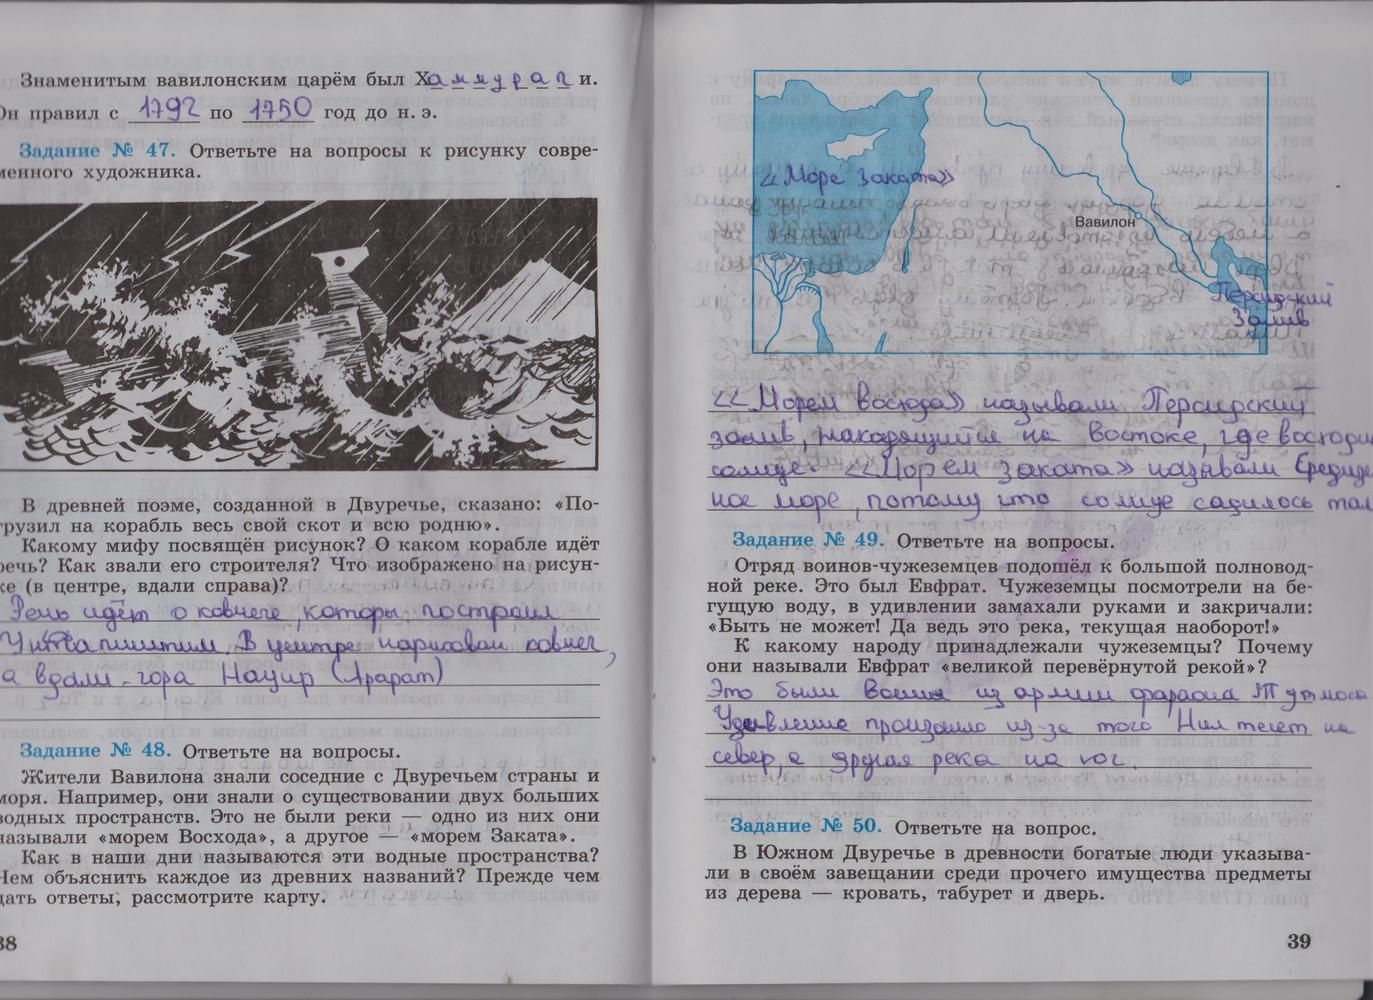 Знаменитым вавилонским царём был Хаммурапи.
Он правил с 1792 по 1750 год до н. э.
Задание № 47. Ответьте на вопросы к рисунку совре-
менного художника.
В древней поэме, созданной в Двуречье, сказано: «По-
грузил на корабль весь свой скот и всю родню».
Какому мифу посвящён рисунок? О каком корабле идёт
речь? Как звали его строителя? Что изображено на рисун-
ке (в центре, вдали справа)?
Речь идёт о ковчеге, которы построил
Утнапиштим. В центре нарисован ковчег,
а вдали-гора Нацир (Арарат)
Задание № 48. Ответьте на вопросы.
Жители Вавилона знали соседние с Двуречьем страны и
моря. Например, они знали о существовании двух больших
водных пространств. Это не были реки — одно из них они
называли «морем Восхода», а другое — «морем Заката».
Как в наши дни называются эти водные пространства?
Чем объяснить каждое из древних названий? Прежде чем
дать ответы, рассмотрите карту.
38
«Море заката»
Вавилон
Персидский
Залив
«Морем восхода» называли Персидский
залив, находящийся на востоке, где восходи
солнце. «Морем заката» называли Средизе
ное море, потому что солнце садилось там
Задание № 49. Ответьте на вопросы.
Отряд воинов-чужеземцев подошёл к большой полновод-
ной реке. Это был Евфрат. Чужеземцы посмотрели на бе-
гущую воду, в удивлении замахали руками и закричали:
«Быть не может! Да ведь это река, текущая наоборот!»
К какому народу принадлежали чужеземцы? Почему
они называли Евфрат «великой перевёрнутой рекой»?
Это были воины из армии фараона Тутмоса
Удивление произошло из-за того Нил течет на
север, а другая река на юг.
Задание № 50. Ответьте на вопрос.
В Южном Двуречье в древности богатые люди указыва-
ли в своём завещании среди прочего имущества предметы
из дерева — кровать, табурет и дверь.
39